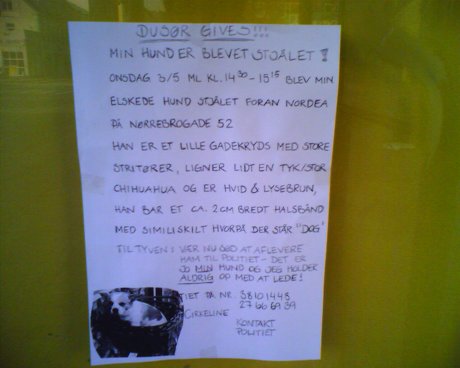 DUSØR GIVES!!!
MIN HUND ER BLEVET STJÅLET!
ONSDAG 3/5 ML KL. 14³⁰-15¹⁵ BLEV MIN
ELSKEDE HUND STJÅLET FORAN NORDEA
PÅ NØRREBROGADE 52
HAN ER ET LILLE GADEKRYDS MED STORE
STRITØRER, LIGNER LIDT EN TYK/STOR
CHIHUAHUA OG ER HVID & LYSEBRUN,
HAN BAR ET CA. 2CM BREDT HALSBÅND
MED SIMILISKILT HVORPÅ DER STÅR "DOG"
TIL TYVEN: VÆR NU SØD AT AFLEVERE
HAM TIL POLITIET - DET ER
JO MIN HUND OG JEG HOLDER
ALDRIG OP MED AT LEDE!
PÅ NR. 38101448
27666939
CIRKELINE
KONTAKT
POLITIET